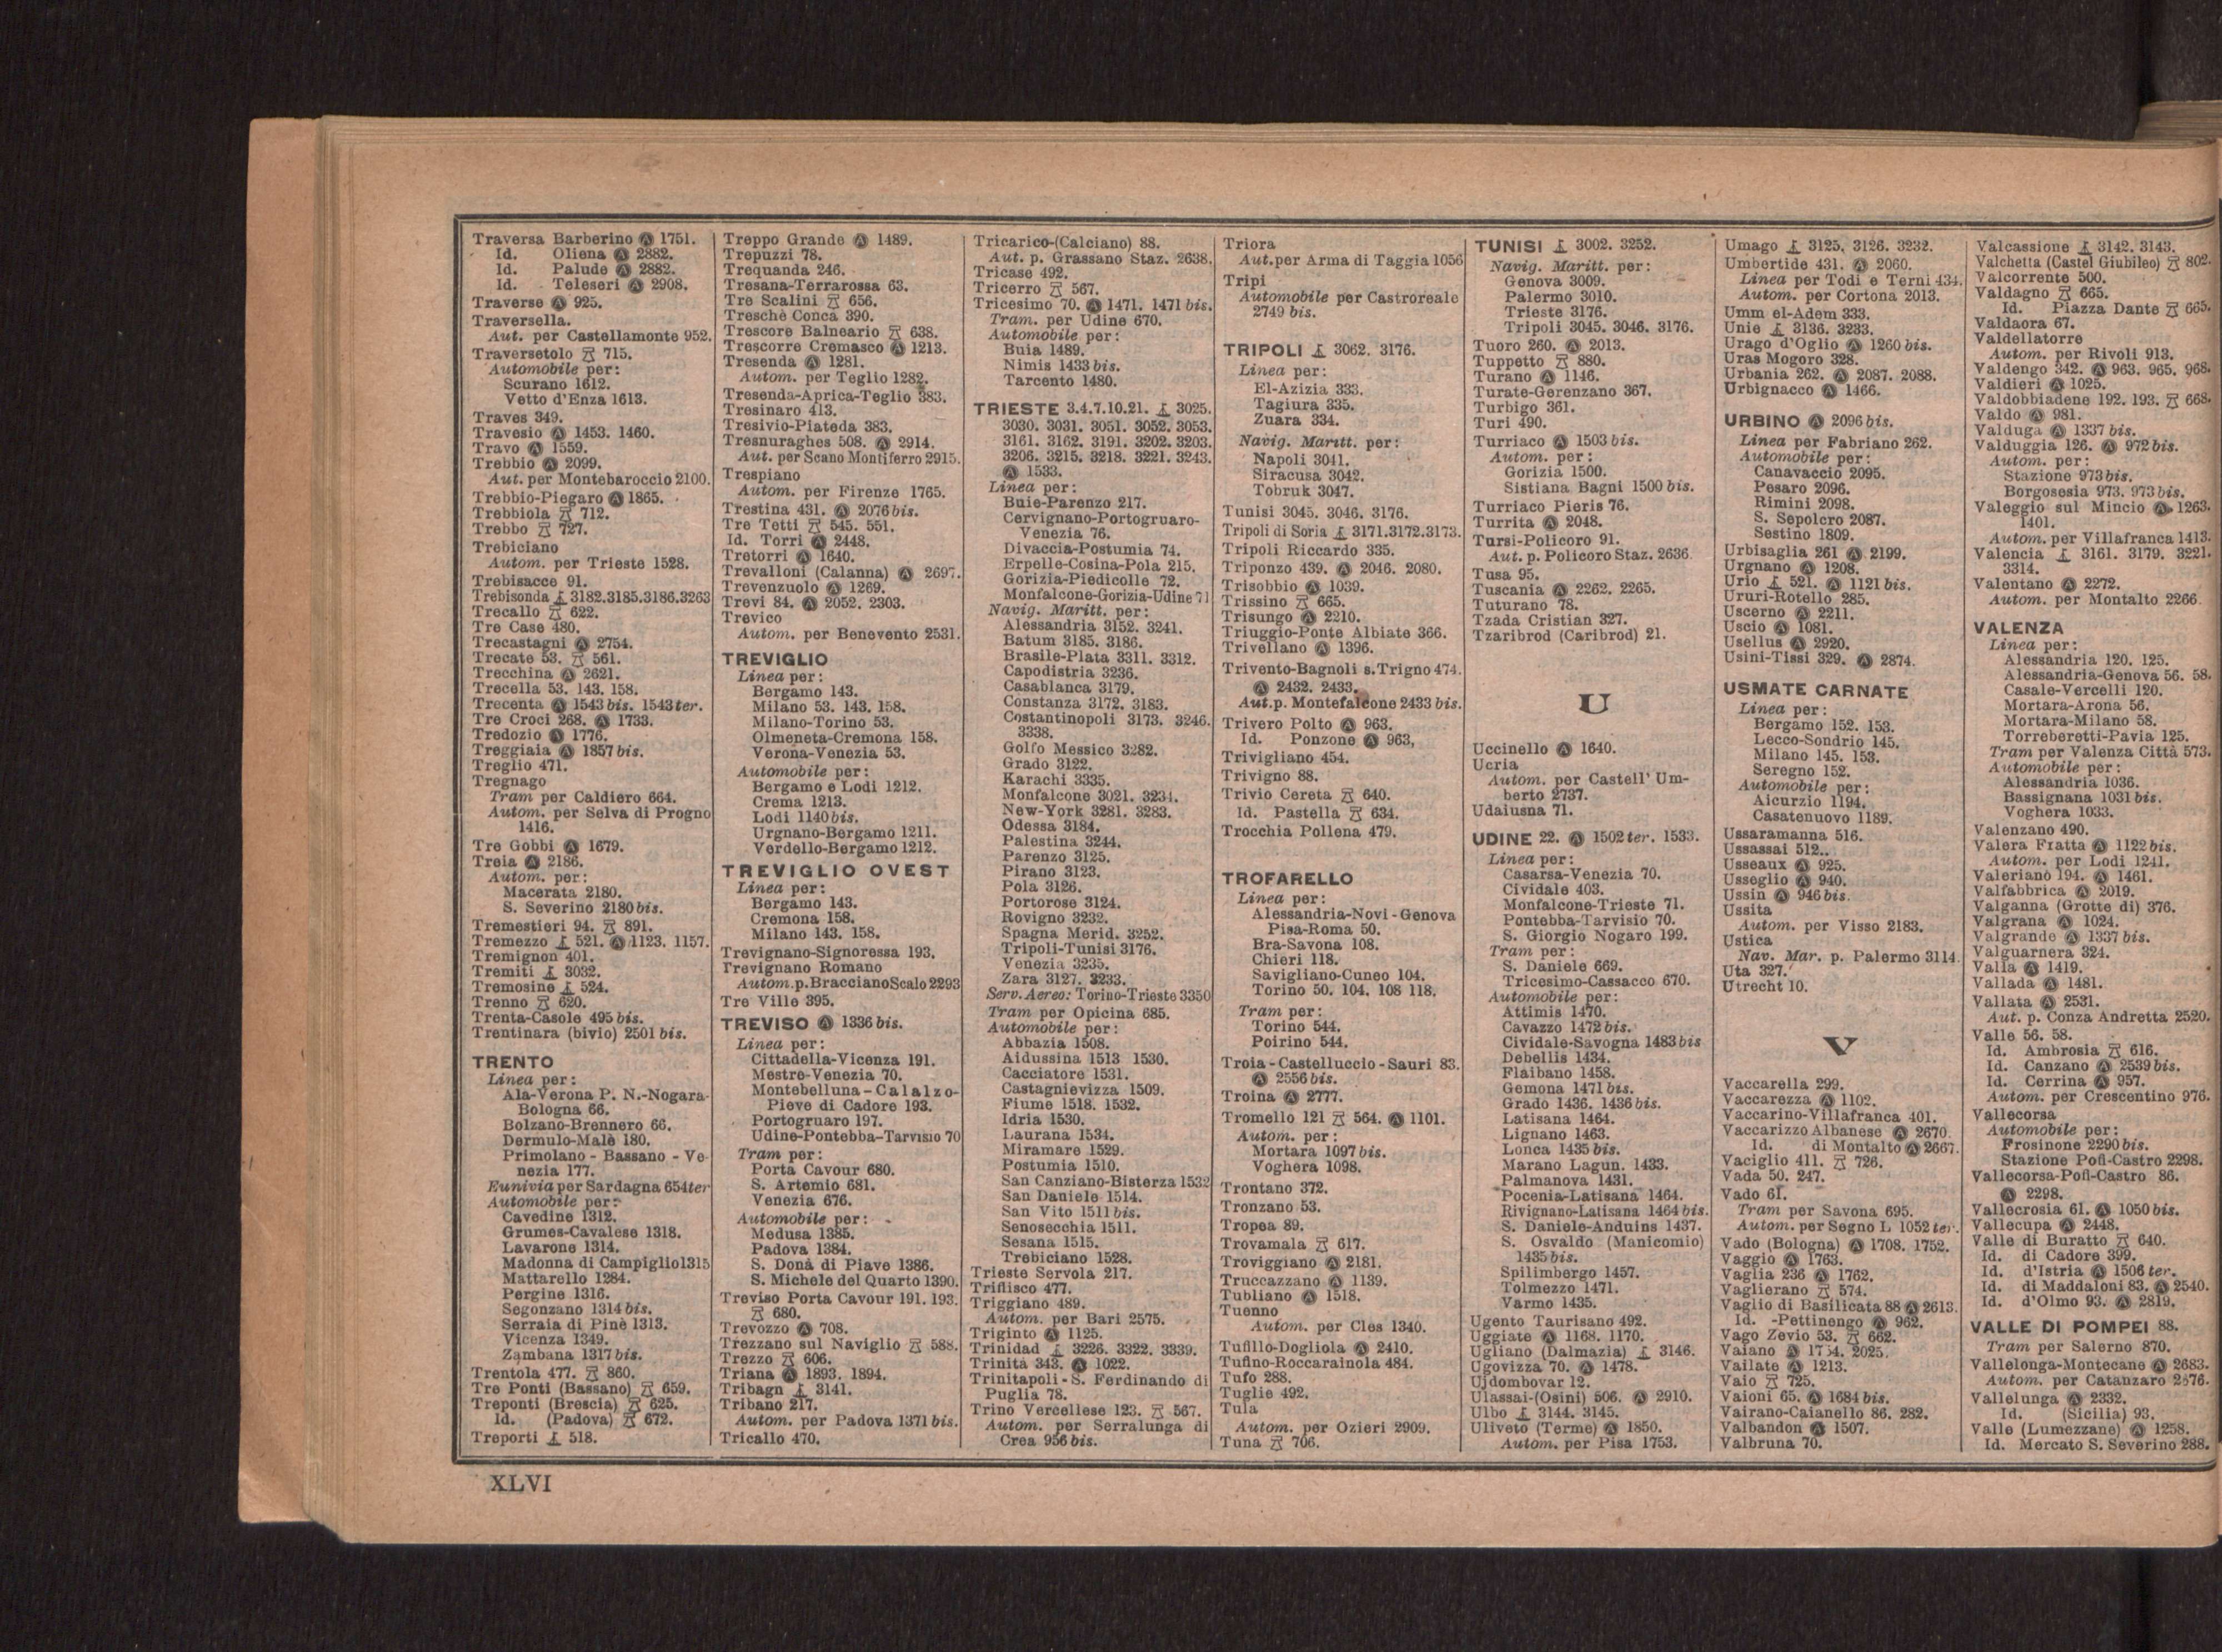 Traversa Barberino Ⓐ 1751.
Id. Oliena Ⓐ 2882.
Id. Palude Ⓐ 2882.
Id. Teleseri Ⓐ 2908.
Traverse Ⓐ 925.
Traversella.
Aut. per Castellamonte 952.
Traversetolo 715.
Automobile per:
Scurano 1612.
Vetto d'Enza 1613.
Traves 349.
Travesio Ⓐ 1453. 1460.
Travo Ⓐ 1559.
Trebbio Ⓐ 2099.
Aut. per Montebaroccio 2100.
Trebbio-Piegaro Ⓐ 1865.
Trebbiola 712.
Trebbo 727.
Trebiciano
Autom. per Trieste 1528.
Trebisacce 91.
Trebisonda 3182.3185.3186.3263
Trecallo 622.
Tre Case 480.
Trecastagni Ⓐ 2754.
Trecate 53. 561.
Trecchina Ⓐ 2621.
Trecella 53. 143. 158.
Trecenta Ⓐ 1543 bis. 1543 ter.
Tre Croci 268. Ⓐ 1733.
Tredozio Ⓐ 1776.
Treggiaia Ⓐ 1857 bis.
Treglio 471.
Tregnago
Tram per Caldiero 664.
Autom. per Selva di Progno
1416.
Tre Gobbi Ⓐ 1679.
Treia Ⓐ 2186.
Autom. per:
Macerata 2180.
S. Severino 2180 bis.
Tremestieri 94. 891.
Tremezzo 521. Ⓐ 1123. 1157.
Tremignon 401.
Tremiti 3032.
Tremosine 524.
Trenno 620.
Trenta-Casole 495 bis.
Trentinara (bivio) 2501 bis.
TRENTO
Linea per:
Ala-Verona P. N.-Nogara-
Bologna 66.
Bolzano-Brennero 66.
Dermulo-Malè 180.
Primolano - Bassano - Ve-
nezia 177.
Funivia per Sardagna 654ter
Automobile per:
Cavedine 1312.
Grumes-Cavalese 1318.
Lavarone 1314.
Madonna di Campiglio1315
Mattarello 1284.
Pergine 1316.
Segonzano 1314 bis.
Serraia di Pinè 1313.
Vicenza 1349.
Zambana 1317 bis.
Trentola 477. 860.
Tre Ponti (Bassano) 659.
Treponti (Brescia) 625.
Id. (Padova) 672.
Treporti 518.
Treppo Grande Ⓐ 1489.
Trepuzzi 78.
Trequanda 246.
Tresana-Terrarossa 63.
Tre Scalini 656.
Treschè Conca 390.
Trescore Balneario 638.
Trescorre Cremasco Ⓐ 1213.
Tresenda Ⓐ 1281.
Autom. per Teglio 1282.
Tresenda-Aprica-Teglio 383.
Tresinaro 413.
Tresivio-Piateda 383.
Tresnuraghes 508. Ⓐ 2914.
Aut. per Scano Montiferro 2915.
Trespiano
Autom. per Firenze 1765.
Trestina 431. Ⓐ 2076 bis.
Tre Tetti 545. 551.
Id. Torri Ⓐ 2448.
Tretorri Ⓐ 1640.
Trevalloni (Calanna) Ⓐ 2697.
Trevenzuolo Ⓐ 1269.
Trevi 84. Ⓐ 2052. 2303.
Trevico
Autom. per Benevento 2531.
TREVIGLIO
Linea per:
Bergamo 143.
Milano 53. 143. 158.
Milano-Torino 53.
Olmeneta-Cremona 158.
Verona-Venezia 53.
Automobile per:
Bergamo e Lodi 1212.
Crema 1213.
Lodi 1140 bis.
Urgnano-Bergamo 1211.
Verdello-Bergamo 1212.
TREVIGLIO OVEST
Linea per:
Bergamo 143.
Cremona 158.
Milano 143. 158.
Trevignano-Signoressa 193.
Trevignano Romano
Autom.p.BraccianoScalo 2293
Tre Ville 395.
TREVISO Ⓐ 1336 bis.
Linea per:
Cittadella-Vicenza 191.
Mestre-Venezia 70.
Montebelluna - Calalzo-
Pieve di Cadore 193.
Portogruaro 197.
Udine-Pontebba-Tarvisio 70
Tram per:
Porta Cavour 680.
S. Artemio 681.
Venezia 676.
Automobile per:
Medusa 1385.
Padova 1384.
S. Donà di Piave 1386.
S. Michele del Quarto 1390.
Treviso Porta Cavour 191. 193.
680.
Trevozzo Ⓐ 708.
Trezzano sul Naviglio 588.
Trezzo 606.
Triana Ⓐ 1893. 1894.
Tribagn 3141.
Tribano 217.
Autom. per Padova 1371 bis.
Tricallo 470.
Tricarico-(Calciano) 88.
Aut. p. Grassano Staz. 2638.
Tricase 492.
Tricerro 567.
Tricesimo 70. Ⓐ 1471. 1471 bis.
Tram. per Udine 670.
Automobile per:
Buia 1489.
Nimis 1433 bis.
Tarcento 1480.
TRIESTE 3.4.7.10.21. 3025.
3030. 3031. 3051. 3052. 3053.
3161. 3162. 3191. 3202. 3203.
3206. 3215. 3218. 3221. 3243.
Ⓐ 1533.
Linea per:
Buie-Parenzo 217.
Cervignano-Portogruaro-
Venezia 76.
Divaccia-Postumia 74.
Erpelle-Cosina-Pola 215.
Gorizia-Piedicolle 72.
Monfalcone-Gorizia-Udine 71
Navig. Maritt. per:
Alessandria 3152. 3241.
Batum 3185. 3186.
Brasile-Plata 3311. 3312.
Capodistria 3236.
Casablanca 3179.
Constanza 3172. 3183.
Costantinopoli 3173. 3246.
3338.
Golfo Messico 3282.
Grado 3122.
Karachi 3335.
Monfalcone 3021. 3234.
New-York 3281. 3283.
Odessa 3184.
Palestina 3244.
Parenzo 3125.
Pirano 3123.
Pola 3126.
Portorose 3124.
Rovigno 3232.
Spagna Merid. 3252.
Tripoli-Tunisi 3176.
Venezia 3235.
Zara 3127. 3233.
Serv. Aereo: Torino-Trieste 3350
Tram per Opicina 685.
Automobile per:
Abbazia 1508.
Aidussina 1513 1530.
Cacciatore 1531.
Castagnievizza 1509.
Fiume 1518. 1532.
Idria 1530.
Laurana 1534.
Miramare 1529.
Postumia 1510.
San Canziano-Bisterza 1532
San Daniele 1514.
San Vito 1511 bis.
Senosecchia 1511.
Sesana 1515.
Trebiciano 1528.
Trieste Servola 217.
Triflisco 477.
Triggiano 489.
Autom. per Bari 2575.
Triginto Ⓐ 1125.
Trinidad 3226. 3322. 3339.
Trinità 343. Ⓐ 1022.
Trinitapoli - S. Ferdinando di
Puglia 78.
Trino Vercellese 123. 567.
Autom. per Serralunga di
Crea 956 bis.
Triora
Aut.per Arma di Taggia 1056
Tripi
Automobile per Castroreale
2749 bis.
TRIPOLI 3062. 3176.
Linea per:
El-Azizia 333.
Tagiura 335.
Zuara 334.
Navig. Maritt. per:
Napoli 3041.
Siracusa 3042.
Tobruk 3047.
Tunisi 3045. 3046. 3176.
Tripoli di Soria 3171.3172.3173.
Tripoli Riccardo 335.
Triponzo 439. Ⓐ 2046. 2080.
Trisobbio Ⓐ 1039.
Trissino 665.
Trisungo Ⓐ 2210.
Triuggio-Ponte Albiate 366.
Trivellano Ⓐ 1396.
Trivento-Bagnoli s.Trigno 474.
Ⓐ 2432. 2433.
Aut.p. Montefalcone 2433 bis.
Trivero Polto Ⓐ 963.
Id. Ponzone Ⓐ 963,
Trivigliano 454.
Trivigno 88.
Trivio Cereta 640.
Id. Pastella 634.
Trocchia Pollena 479.
TROFARELLO
Linea per:
Alessandria-Novi - Genova
Pisa-Roma 50.
Bra-Savona 108.
Chieri 118.
Savigliano-Cuneo 104.
Torino 50. 104. 108 118.
Tram per:
Torino 544.
Poirino 544.
Troia - Castelluccio - Sauri 83.
Ⓐ 2556 bis.
Troina Ⓐ 2777.
Tromello 121 564. Ⓐ 1101.
Autom. per:
Mortara 1097 bis.
Voghera 1098.
Trontano 372.
Tronzano 53.
Tropea 89.
Trovamala 617.
Troviggiano Ⓐ 2181.
Truccazzano Ⓐ 1139.
Tubliano Ⓐ 1518.
Tuenno
Autom. per Cles 1340.
Tufillo-Dogliola Ⓐ 2410.
Tufino-Roccarainola 484.
Tufo 288.
Tuglie 492.
Tula
Autom. per Ozieri 2909.
Tuna 706.
TUNISI 3002. 3252.
Navig. Maritt. per:
Genova 3009.
Palermo 3010.
Trieste 3176.
Tripoli 3045. 3046. 3176.
Tuoro 260. Ⓐ 2013.
Tuppetto 880.
Turano Ⓐ 1146.
Turate-Gerenzano 367.
Turbigo 361.
Turi 490.
Turriaco Ⓐ 1503 bis.
Autom. per:
Gorizia 1500.
Sistiana Bagni 1500 bis.
Turriaco Pieris 76.
Turrita Ⓐ 2048.
Tursi-Policoro 91.
Aut. p. Policoro Staz. 2636.
Tusa 95.
Tuscania Ⓐ 2262. 2265.
Tuturano 78.
Tzada Cristian 327.
Tzaribrod (Caribrod) 21.
U
Uccinello Ⓐ 1640.
Ucria
Autom. per Castell' Um-
berto 2737.
Udaiusna 71.
UDINE 22. Ⓐ 1502 ter. 1533.
Linea per:
Casarsa-Venezia 70.
Cividale 403.
Monfalcone-Trieste 71.
Pontebba-Tarvisio 70.
S. Giorgio Nogaro 199.
Tram per:
S. Daniele 669.
Tricesimo-Cassacco 670.
Automobile per:
Attimis 1470.
Cavazzo 1472 bis.
Cividale-Savogna 1483 bis
Debellis 1434.
Flaibano 1458.
Gemona 1471 bis.
Grado 1436. 1436 bis.
Latisana 1464.
Lignano 1463.
Lonca 1435 bis.
Marano Lagun. 1433.
Palmanova 1431.
Pocenia-Latisana 1464.
Rivignano-Latisana 1464 bis.
S. Daniele-Anduins 1437.
S. Osvaldo (Manicomio)
1435 bis.
Spilimbergo 1457.
Tolmezzo 1471.
Varmo 1435.
Ugento Taurisano 492.
Uggiate Ⓐ 1168. 1170.
Ugliano (Dalmazia) 3146.
Ugovizza 70. Ⓐ 1478.
Ujdombovar 12.
Ulassai-(Osini) 506. Ⓐ 2910.
Ulbo 3144. 3145.
Uliveto (Terme) Ⓐ 1850.
Autom. per Pisa 1753.
Umago 3125. 3126. 3232.
Umbertide 431. Ⓐ 2060.
Linea per Todi e Terni 434.
Autom. per Cortona 2013.
Umm el-Adem 333.
Unie 3136. 3233.
Urago d'Oglio Ⓐ 1260 bis.
Uras Mogoro 328.
Urbania 262. Ⓐ 2087. 2088.
Urbignacco Ⓐ 1466.
URBINO Ⓐ 2096 bis.
Linea per Fabriano 262.
Automobile per:
Canavaccio 2095.
Pesaro 2096.
Rimini 2098.
S. Sepolcro 2087.
Sestino 1809.
Urbisaglia 261 Ⓐ 2199.
Urgnano Ⓐ 1208.
Urio 521. Ⓐ 1121 bis.
Ururi-Rotello 285.
Uscerno Ⓐ 2211.
Uscio Ⓐ 1081.
Usellus Ⓐ 2920.
Usini-Tissi 329. Ⓐ 2874.
USMATE CARNATE
Linea per:
Bergamo 152. 153.
Lecco-Sondrio 145.
Milano 145. 153.
Seregno 152.
Automobile per:
Aicurzio 1194.
Casatenuovo 1189.
Ussaramanna 516.
Ussassai 512..
Usseaux Ⓐ 925.
Usseglio Ⓐ 940.
Ussin Ⓐ 946 bis.
Ussita
Autom. per Visso 2183.
Ustica
Nav. Mar. p. Palermo 3114.
Uta 327.
Utrecht 10.
V
Vaccarella 299.
Vaccarezza Ⓐ 1102.
Vaccarino-Villafranca 401.
Vaccarizzo Albanese Ⓐ 2670.
Id. di Montalto Ⓐ 2667.
Vaciglio 411. 726.
Vada 50. 247.
Vado 61.
Tram per Savona 695.
Autom. per Segno L 1052 ter.
Vado (Bologna) Ⓐ 1708. 1752.
Vaggio Ⓐ 1763.
Vaglia 236 Ⓐ 1762.
Vaglierano 574.
Vaglio di Basilicata 88 Ⓐ 2613.
Id. -Pettinengo Ⓐ 962.
Vago Zevio 53. 662.
Vaiano Ⓐ 2025.
Vailate Ⓐ 1213.
Vaio 725.
Vaioni 65. Ⓐ 1684 bis.
Vairano-Caianello 86. 282.
Valbandon Ⓐ 1507.
Valbruna 70.
Valcassione 3142. 3143.
Valchetta (Castel Giubileo) 802.
Valcorrente 500.
Valdagno 665.
Id. Piazza Dante 665.
Valdaora 67.
Valdellatorre
Autom. per Rivoli 913.
Valdengo 342. Ⓐ 963. 965. 968.
Valdieri Ⓐ 1025.
Valdobbiadene 192. 193. 668.
Valdo Ⓐ 981.
Valduga Ⓐ 1337 bis.
Valduggia 126. Ⓐ 972 bis.
Autom. per:
Stazione 973 bis.
Borgosesia 973. 973 bis.
Valeggio sul Mincio Ⓐ 1263.
1401.
Autom. per Villafranca 1413.
Valencia 3161. 3179. 3221.
3314.
Valentano Ⓐ 2272.
Autom. per Montalto 2266.
VALENZA
Linea per:
Alessandria 120. 125.
Alessandria-Genova 56. 58.
Casale-Vercelli 120.
Mortara-Arona 56.
Mortara-Milano 58.
Torreberetti-Pavia 125.
Tram per Valenza Città 573.
Automobile per:
Alessandria 1036.
Bassignana 1031 bis.
Voghera 1033.
Valenzano 490.
Valera Fratta Ⓐ 1122 bis.
Autom. per Lodi 1241.
Valeriano 194. Ⓐ 1461.
Valfabbrica Ⓐ 2019.
Valganna (Grotte di) 376.
Valgrana Ⓐ 1024.
Valgrande Ⓐ 1337 bis.
Valguarnera 324.
Valla Ⓐ 1419.
Vallada Ⓐ 1481.
Vallata Ⓐ 2531.
Aut. p. Conza Andretta 2520.
Valle 56. 58.
Id. Ambrosia 616.
Id. Canzano Ⓐ 2539 bis.
Id. Cerrina Ⓐ 957.
Autom. per Crescentino 976.
Vallecorsa
Automobile per:
Frosinone 2290 bis.
Stazione Pofi-Castro 2298.
Vallecorsa-Pofi-Castro 86.
Ⓐ 2298.
Vallecrosia 61. Ⓐ 1050 bis.
Vallecupa Ⓐ 2448.
Valle di Buratto 640.
Id. di Cadore 399.
Id. d'Istria Ⓐ 1506 ter.
Id. di Maddaloni 83. Ⓐ 2540.
Id. d'Olmo 93. Ⓐ 2819.
VALLE DI POMPEI 88.
Tram per Salerno 870.
Vallelonga-Montecane Ⓐ 2683.
Autom. per Catanzaro 2676.
Vallelunga Ⓐ 2332.
Id. (Sicilia) 93.
Valle (Lumezzane) Ⓐ 1258.
Id. Mercato S. Severino 288.
XLVI